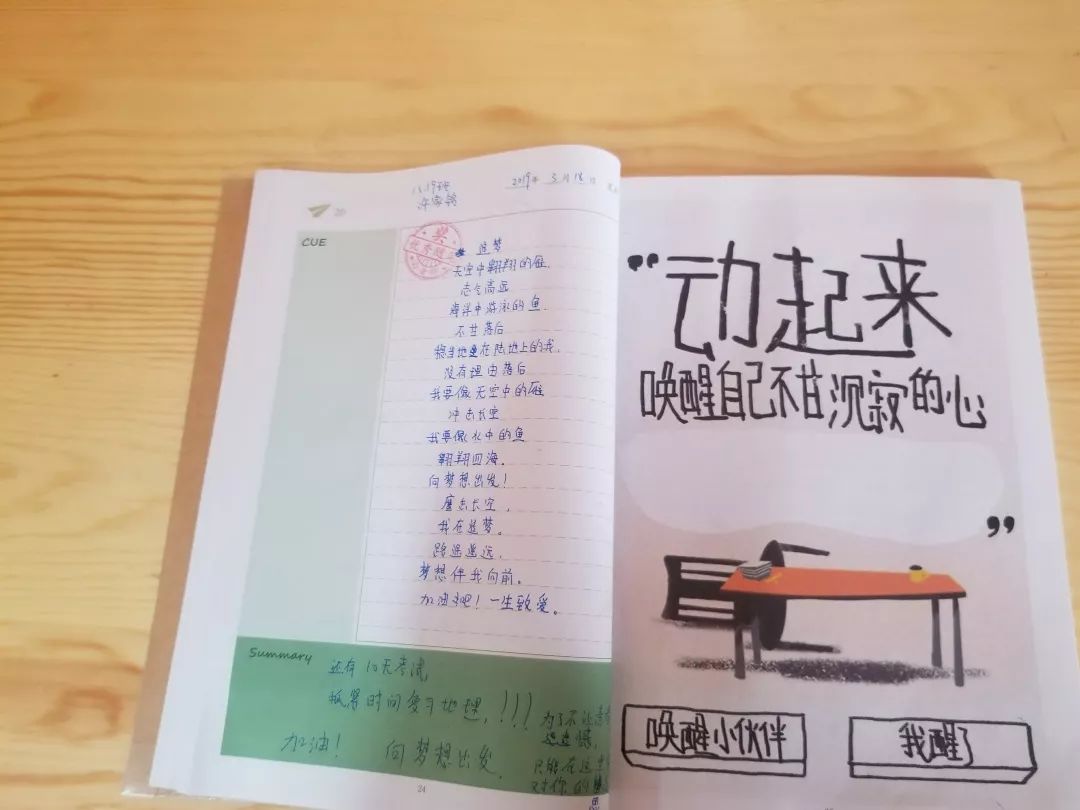 18.19班
2019年 3月18日
20
CUE
奖
追梦
天空中翱翔的雁,
志气高远
海洋中游泳的鱼.
不甘落后
稳当地走在陆地上的我,
没有理由落后
我要像天空中的雁
冲击长空
我要像水中的鱼
翱翔四海.
向梦想出发!
鹰击长空,
我在追梦。
路遥遥远.
梦想伴我向前。
加油吧!一生致爱。
Summary
还有10天考试,
抓紧时间复习地理,!!!
加油! 向梦想出发.
为了不让青
遗憾,
只能在这
对你的
24
“动起来
唤醒自己不甘沉寂的心
”
唤醒小伙伴
我醒了